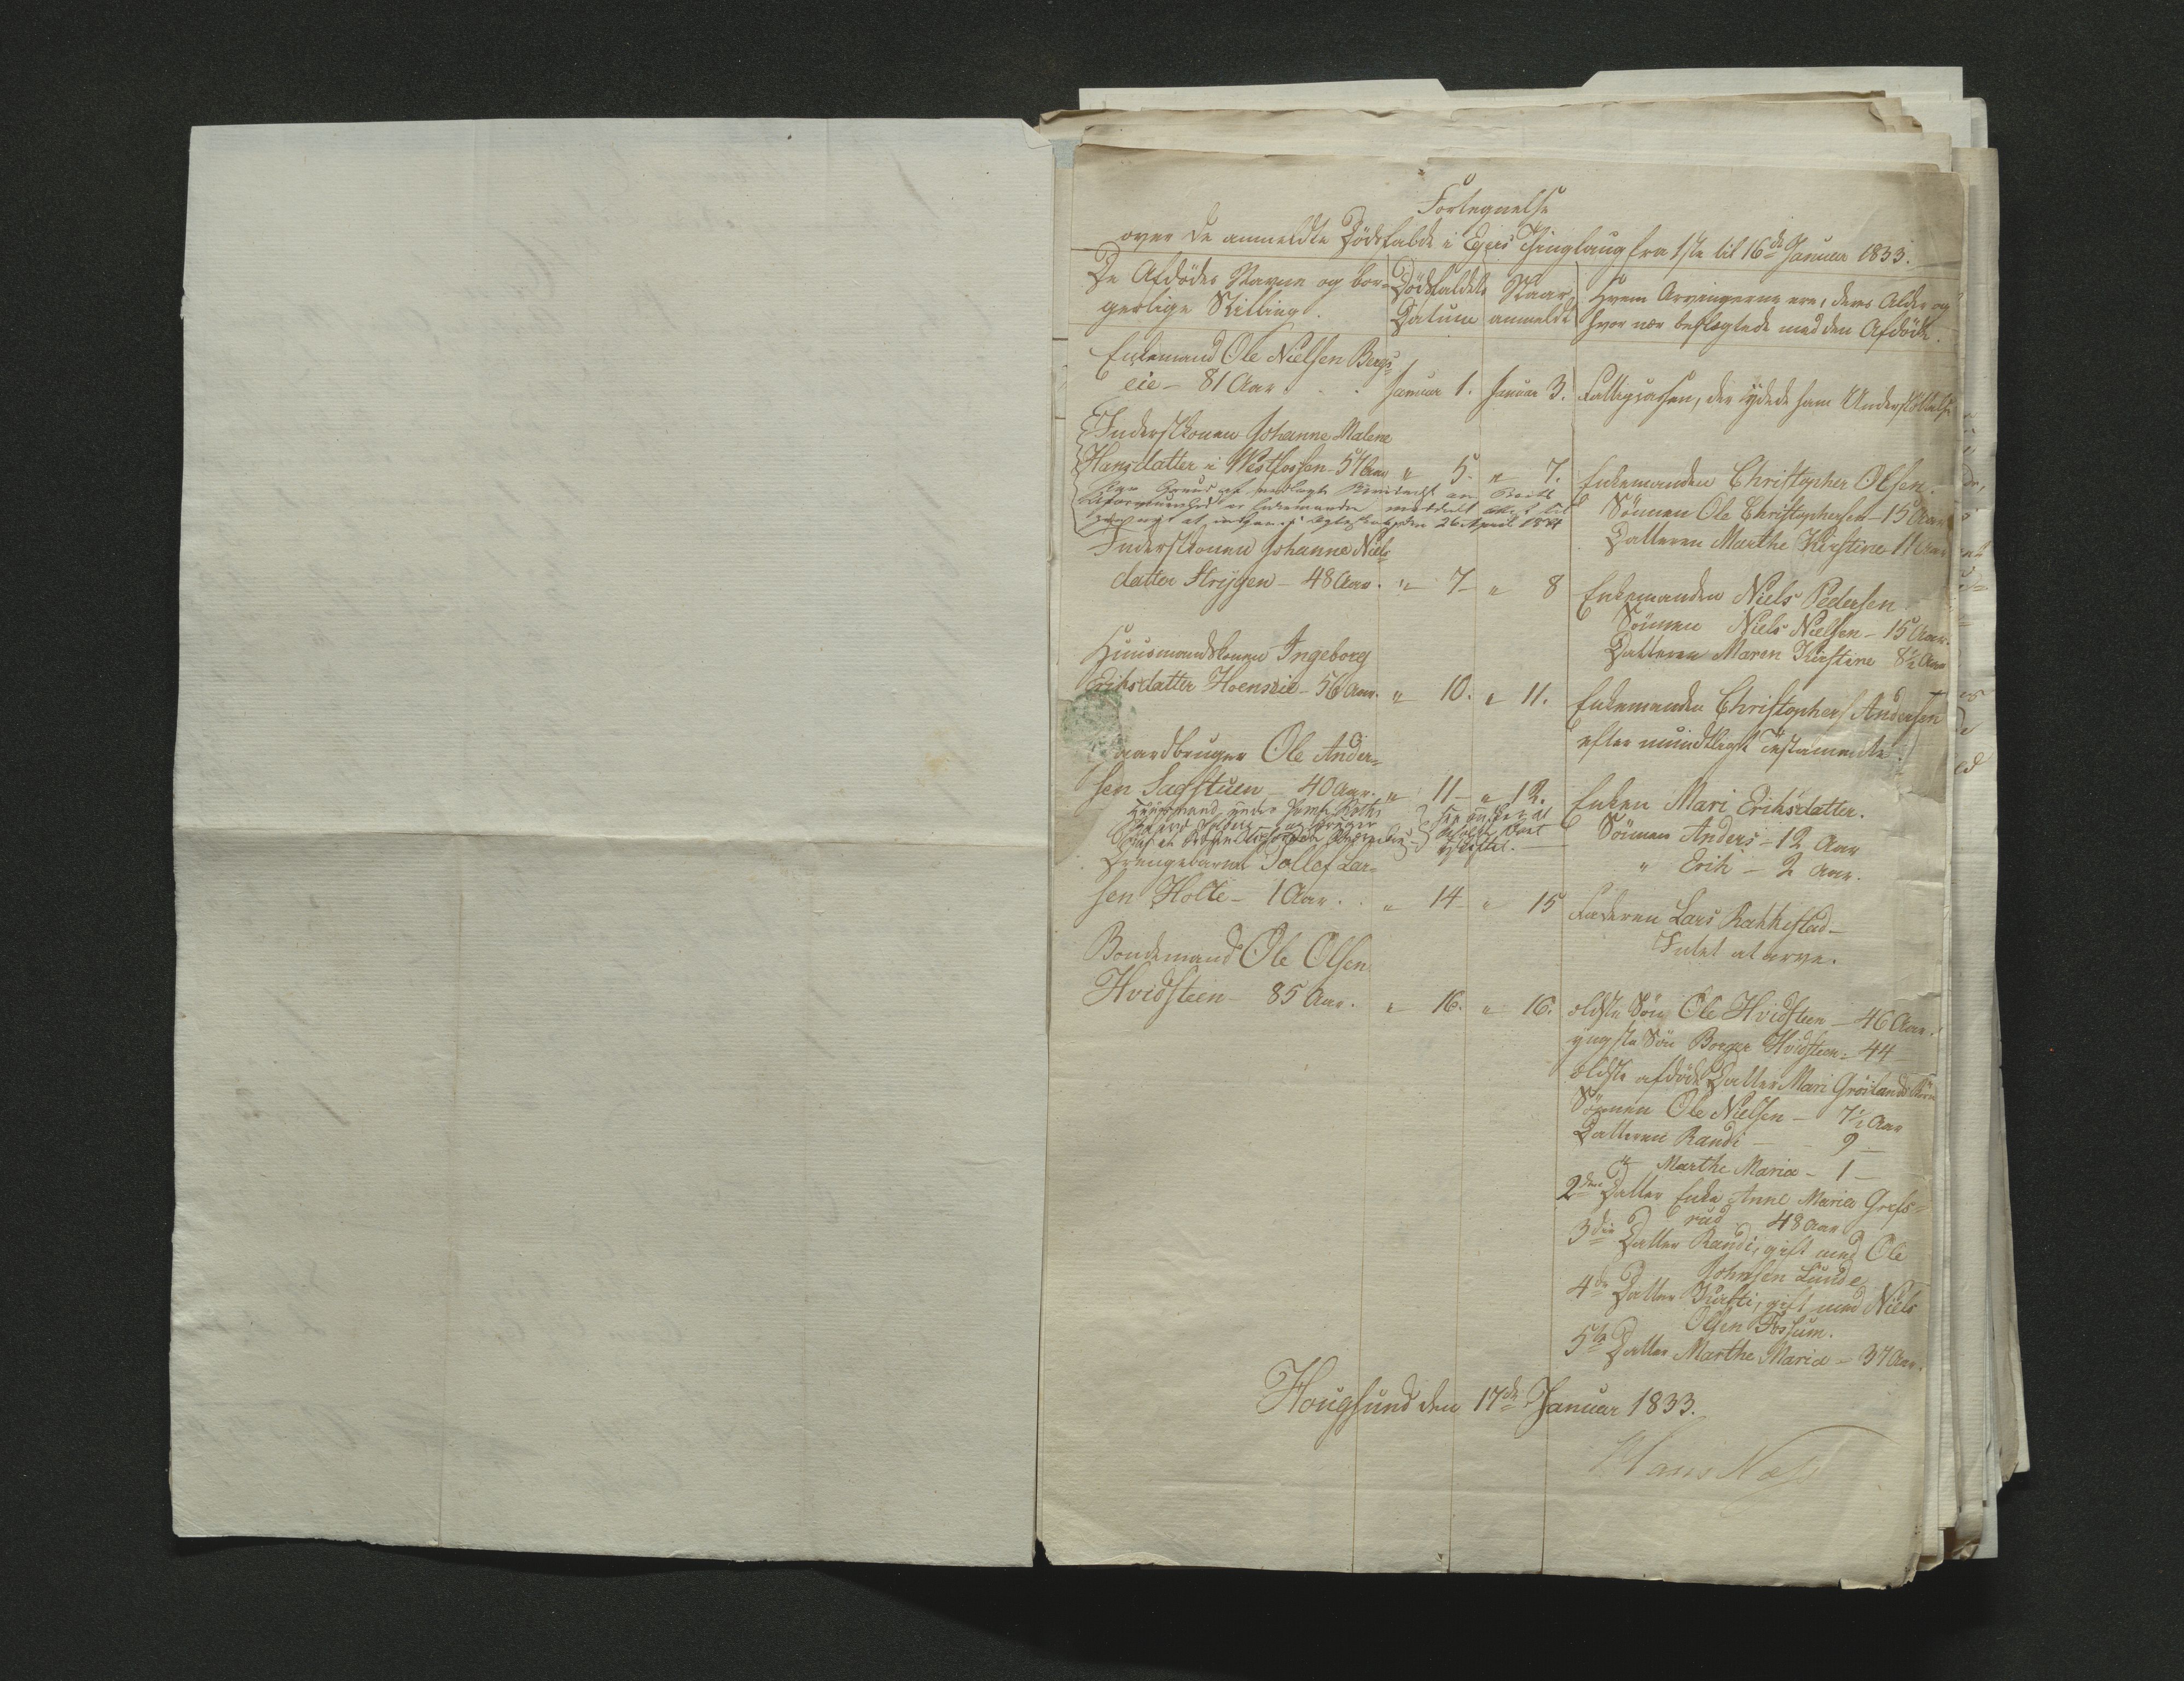 Fortegnelse
over de anmeldte Dödsfalde i Egers Thinglaug fra 1ste til 16de Januar 1833.
De Afdödes Navne og bor-
gerlige Stilling.
Dödsfaldets
Datum
Naar
anmeldt
Hvem Arvingerne ere, deres Alder og
hvor nær beslægtede med den Afdöde.
Enkemand Ole Nielsen Bergs-
eie - 81 Aar . . Januar 1. Januar 3. Fattigcassen, der ydede ham Understöttelse
Inderstkonen Johanne Malene
Hansdatter i Vestfossen - 57 Aar " 5. " 7. Enkemanden Christopher Olsen.
Sönnen Ole Christophersen - 15 Aar
Datteren Marthe Kirstine 11 Aar
er Enkemanden meddelt
at indgaae i Ægteskab den 26 April 1834
Inderstkonen Johanne Niels-
datter Strygen - 48 Aar. " 7 - " 8 Enkemanden Niels Pedersen
Sönnen Niels Nielsen - 15 Aar.
Datteren Maren Kirstine 8½ Aar
Huusmandskonen Ingeborg
Eriksdatter Hoenseie - 56 Aar. " 10. " 11. Enkemanden Christopher Andersen
efter mundtligt Testamente.
aardbruger Ole Ander-
sen Sagstuen - 40 Aar. " 11 - " 12. Enken Mari Eriksdatter.
Sönnen Anders - 12 Aar
" Erik - 2 Aar.
Huusmand under
Drengebarnet Tollef Lar-
sen Holte - 1 Aar. . " 14 - " 15 Faderen Lars Rakkestad -
Intet at arve.
Bondemand Ole Olsen
Hvidsteen - 85 Aar. " 16. " 16. ældste Sön Ole Hvidsteen - 46 Aar.
yngste Sön Borger Hvidsteen - 44 -
ældste afdöde Datter Mari Gröslands Börn
Sönnen Ole Nielsen - 7½ Aar
Datteren Randi - - 9 -
" Marthe Maria - 1 -
2den Datter Enke Anne Maria Grefs-
rud 48 Aar
3die Datter Randi, gift med Ole
Johnsen Lunde
4de Datter Kirsti, gift med Niels
Olsen Fossum.
5te Datter Marthe Maria - 37 Aar.
Hougsund den 17de Januar 1833.
Hans Næss